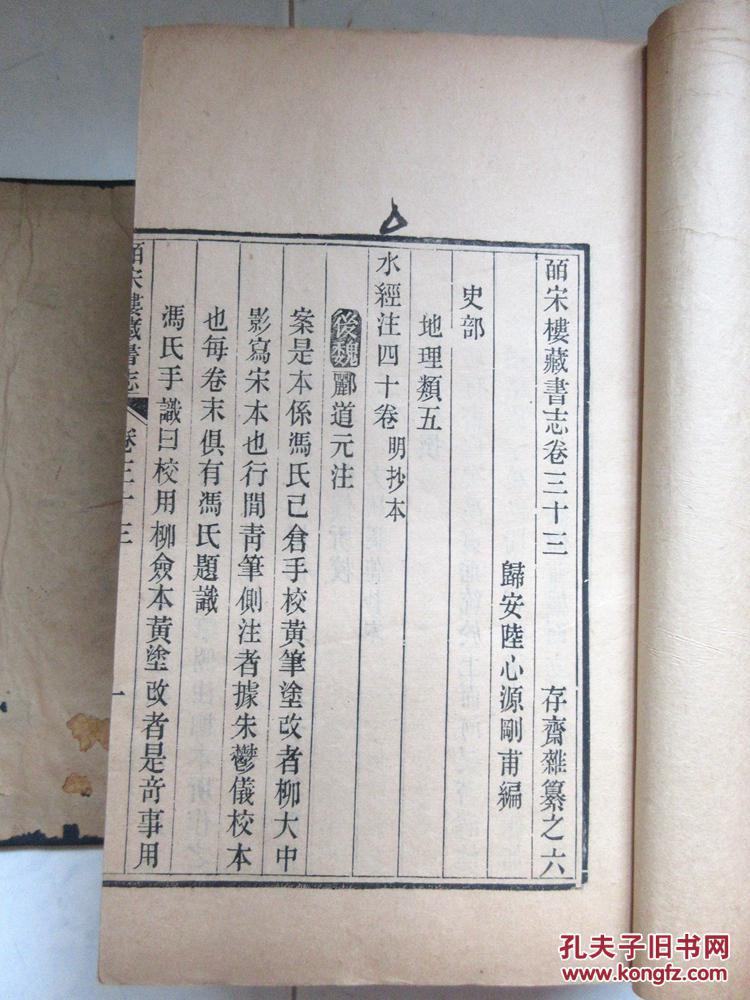 皕宋樓藏書志卷三十三 存齋雜纂之六
歸安陸心源剛甫編
史部
地理類五
水經注四十卷 明抄本
後魏酈道元注
案是本係馮氏己倉手校黃筆塗改者柳大中
影寫宋本也行閒靑筆側注者據朱鬱儀校本
也每卷末俱有馮氏題識
馮氏手識曰校用柳僉本黃塗改者是竒事用
皕宋樓藏書志 卷三十三 一
孔夫子旧书网
www.kongfz.com